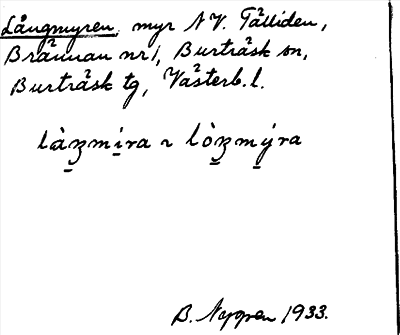 Långmyren, myr NV. Tälliden,
Brännan nr 1, Burträsk sn,
Burträsk tg, Västerb. l.
làʒmi̠ra ~ lòʒmýra
B. Nygren 1933.